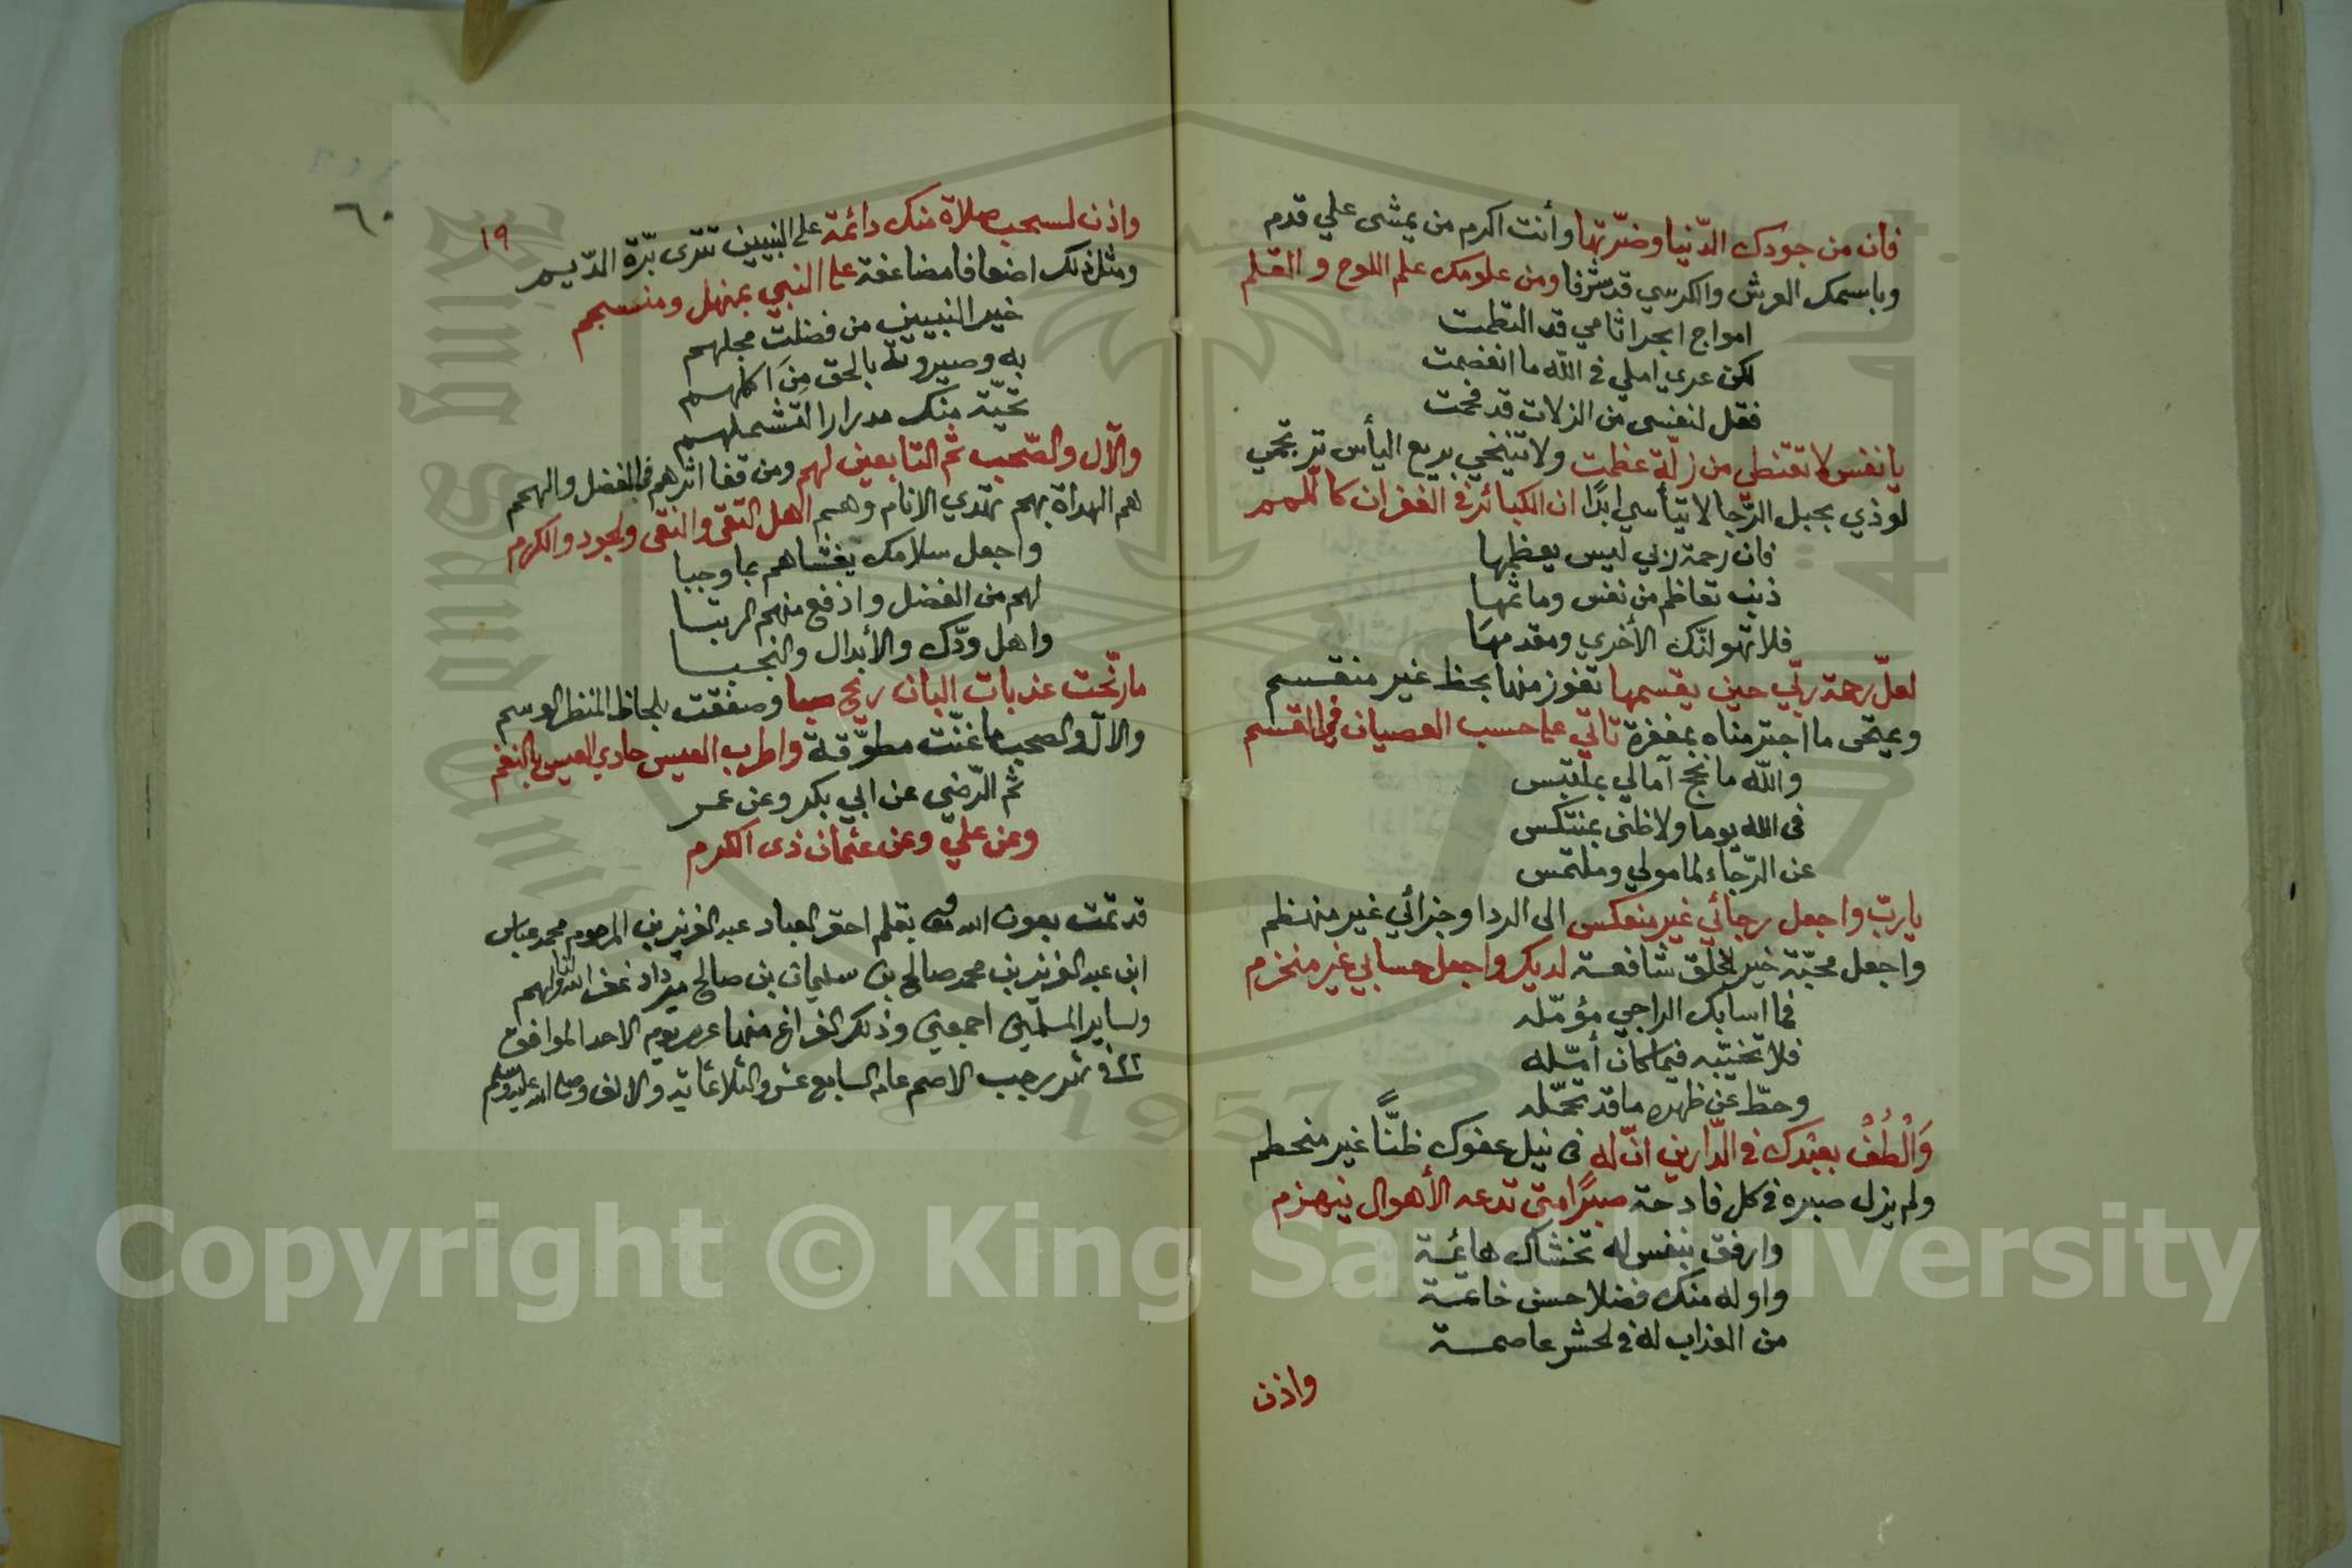 فان من جودك الدّنيا وضرّتها وأنت اكرم من يمشى علي قدم
وباسمك العرش والكرسي قد شرفا ومن علومك علم اللوح والقلم
امواج ابحر اثامي قد التطمت
لكن عري املي في اللّه ما انفصمت
فقل لنفسى من الزلات قد فحمت
يا نفس لا تقنطي من زلّة عظمت ولا تنيخي بريع اليأس ترتجمي
لوذي بحبل الرّجا لا تيأسي ابدًا ان الكبائر في الغفران كاللّمم
فان رحمة ربي ليس يعظمها
ذنب تعاظم من نفس وماثمها
فلا تهولنّك الأخري ومقدمها
لعلّ رحمة ربّي حين يقسمها تفوز منها بحظ غير منقسم
ويمتحى ما اجترمناه بمغفرة تاتي علي حسب العصيان في القسم
واللّه ما نجح آمالي بملتبس
فى الله يوما ولا ظنى بمنتكس
عن الرّجاء لمامولي وملتمس
يا ربّ واجعل رجائي غير منعكس الى الردا وجزائي غير منهظم
واجعل محبّة خير الخلق شافعة لديك واجعل حسابي غير منخرم
فما اسابك الراجي مؤمّله
فلا تخيّبه فيما كان أمّله
وحطّ عن ظهره ما قد تحمّله
وَالْطُفْ بعبدك في الدّارين انّ له فى نيل عفوك ظنًّا غير منحطم
ولم يزل صبره في كل فادحة صبرًا متى تدعه الأهوال ينهزم
وارفق بنفس له تخشاك هائمة
واوله منك فضلا حسن خاتمة
من العذاب له في الحشر عاصمة
واذن
٦٠
١٩
واذن لسحب صلاة منك دائمة على النبيين تترى ثرّة الدّيم
ومثل ذلك اضعافا مضاعفة على النبي بمنهل ومنسجم
خير النبيين من فضلت مجلهم
به وصيرونه بالحق مِنَ اكلهم
تحيّة منك مدرارا لتشملهم
والآل والصّحب ثم التابعين لهم ومن قفا اثرهم في الفضل والهمم
هم الهداة بهم تهتدي الانام وهم اهل التقى والنقى والجود والكرم
واجعل سلامك يغشاهم بما وجبا
لهم من الفضل وارفع منهم الرتبا
واهل ودّك والأبدال والنجبا
ما رنّحت عذبات البان ريح صبا وصفقت بلحاظ المنظر الوسم
والآل والصحب ما غنّت مطوّقة واطرب العيس حادي العيس بالنغم
ثم الرّضي عن ابي بكر وعن عمر
وعن علي وعن عثمان ذى الكرم
قد تمت بعون الله تعالى بقلم احقر العباد عبد العزيز بن المرحوم محمد عباس
ابن عبد العزيز بن محمد صالح بن سليمان بن صالح مرداد غفر الله لنا ولهم
ولساير المسلمين اجمعين وذلك الفراغ منها عصر يوم الاحد الموافق
٢٢ في شهر رجب الاصم عام السابع عشر والثلاثمائية والالف وصلى الله عليه وسلم
Copyright © King Saud University
King Saud University
1957